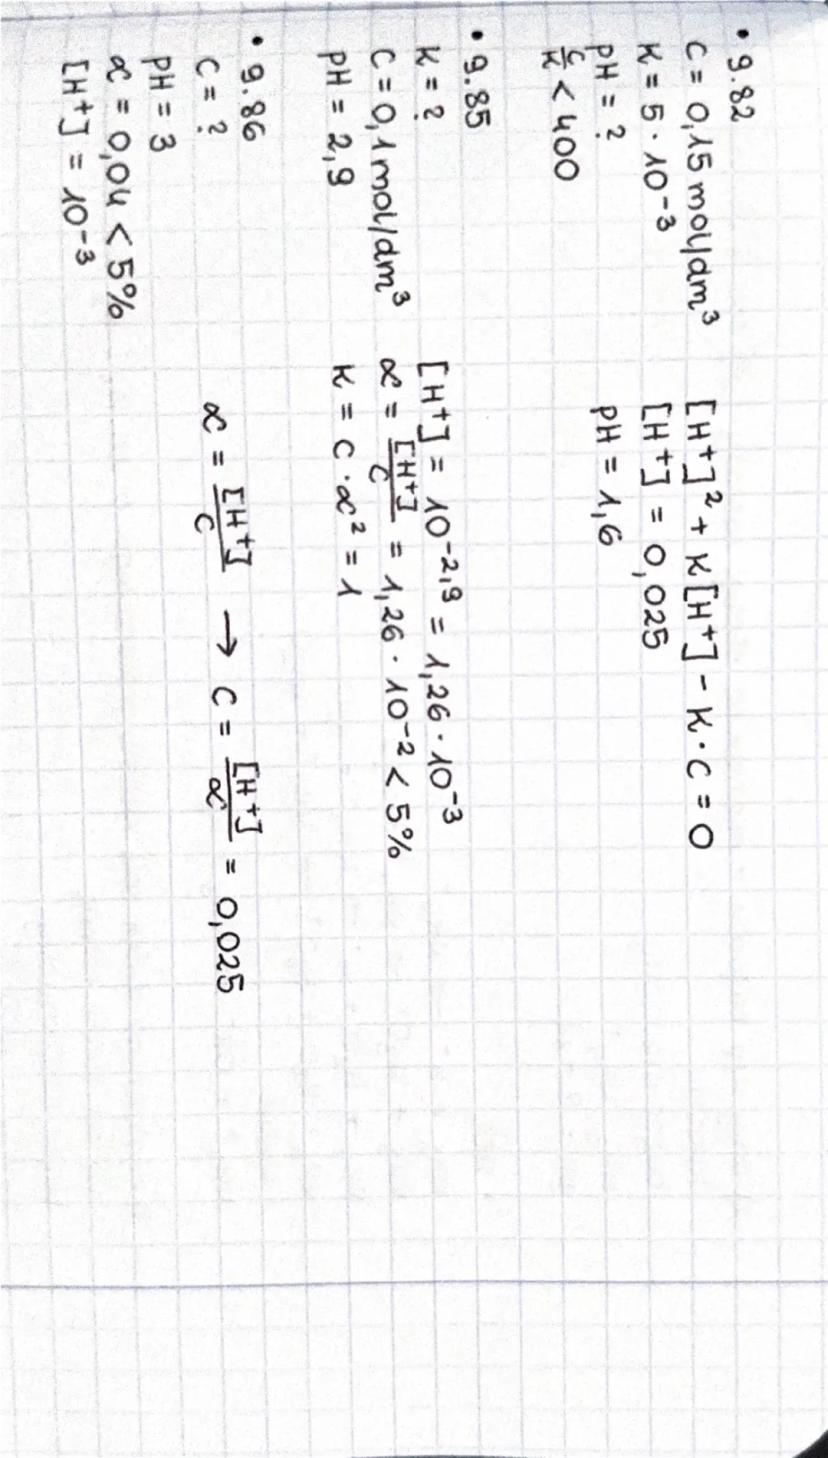 • 9.82
C = 0,15 mol/dm³
K = 5 · 10⁻³
pH = ?
C/K < 400
[H⁺]² + K[H⁺] - K · C = 0
[H⁺] = 0,025
pH = 1,6
• 9.85
K = ?
C = 0,1 mol/dm³
pH = 2,9
[H⁺] = 10⁻²,⁹ = 1,26 · 10⁻³
α = [H⁺]/C = 1,26 · 10⁻² < 5%
K = C · α² = 1
• 9.86
C = ?
pH = 3
α = 0,04 < 5%
[H⁺] = 10⁻³
α = [H⁺]/C → C = [H⁺]/α = 0,025